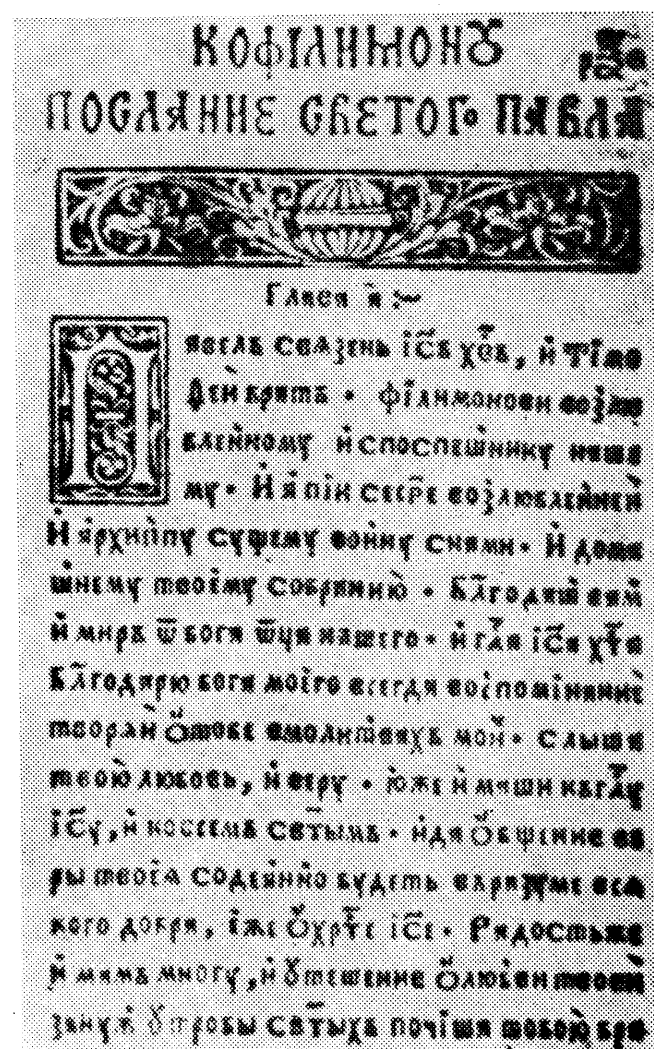 КОФІЛИМОНꙊ
ПОСЛАНИЕ СВЕТОГО ПАВЛА
Глава а҃ :~
Павелъ свѧзень іс҃ъ хв҃ъ, и тімо
ѳей братъ · філимонови возлю
бленному испоспешнику наше
му · И апіи сестре возлюбленней
И архипу сущему воину снами · И дома
шнему твоему собранию · Бл҃годать вам
и миръ ѿ бога ѿца нашего · и гд҃а іс҃а хр҃та
Бл҃годарю бога моіго всегда воіпоминание
творѧи ѻтобе вмолитвахъ мои · слыша
твою любовь, и веру · юже имаши кгд҃у
іс҃у, и ковсемъ свѧтымъ · идя ѻбщение ве
ры твоіѧ содеянно будеть вдразуме всѧ
кого добра, іже ѻхр҃те іс҃е · Радостьже
и мамъ многу, и ꙋтешение ѻлюбви твоей
зану ꙋтробы свѧтыхъ почіша тобою бра